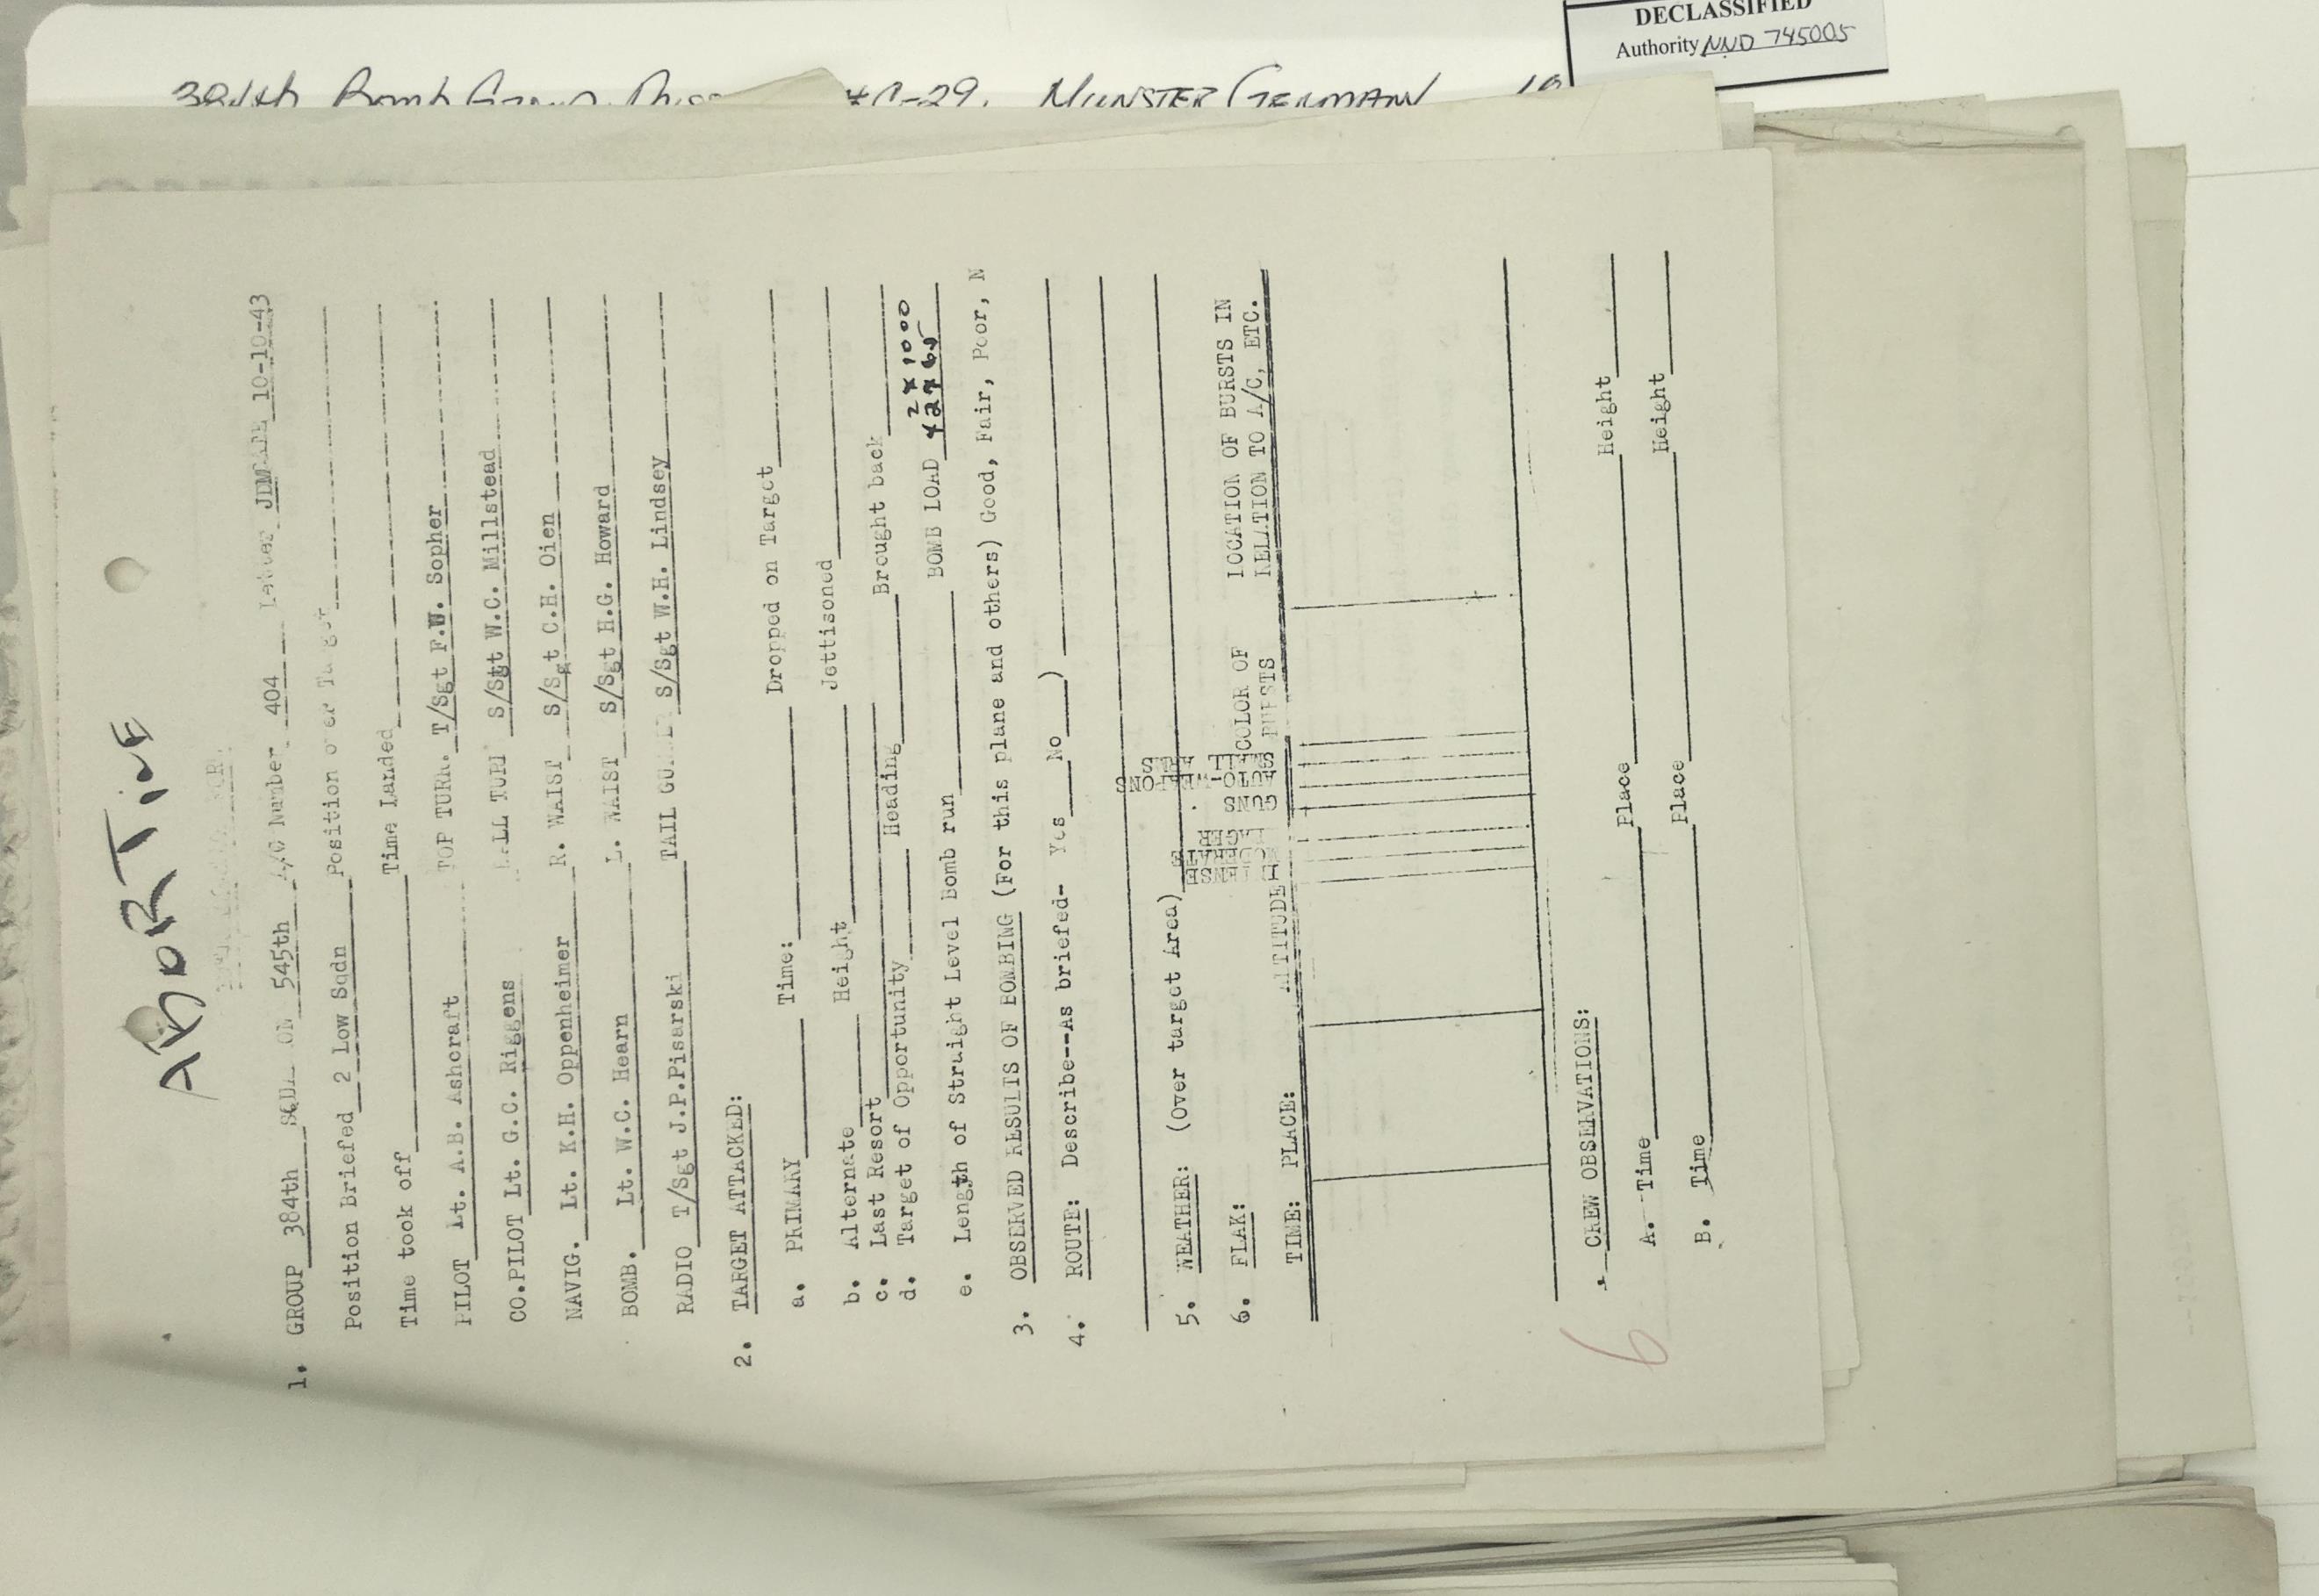 DECLASSIFIED
Authority NND 745005
384th Bomb Group #C-29, MUNSTER GERMANY
ABORTIVE
1. GROUP 384th 545th A/C Number 404 10-10-43
Position Briefed 2 Low Sqdn Position over Target
Time took off Time Landed
PILOT Lt. A.B. Ashcraft TOP TURR. T/Sgt F.W. Sopher
CO.PILOT Lt. G.C. Riggens BALL TURR S/Sgt W.C. Millstead
NAVIG. Lt. K.H. Oppenheimer R. WAIST S/Sgt C.H. Oien
BOMB. Lt. W.C. Hearn L. WAIST S/Sgt H.G. Howard
RADIO T/Sgt J.P.Pisarski TAIL GUNNER S/Sgt W.H. Lindsey
2. TARGET ATTACKED:
a. PRIMARY Time: Dropped on Target
b. Alternate Height Jettisoned
c. Last Resort
d. Target of Opportunity Heading Brought back
e. Length of Straight Level Bomb run BOMB LOAD 2 x 1000
3. OBSERVED RESULTS OF BOMBING (For this plane and others) Good, Fair, Poor, N
4. ROUTE: Describe--As briefed- Yes No )
5. WEATHER: (Over target Area)
6. FLAK:
TIME: PLACE: ALTITUDE INTENSE MODERATE GUNS AUTO-WEAPONS SMALL ARMS COLOR OF BURSTS LOCATION OF BURSTS IN RELATION TO A/C, ETC.
CREW OBSERVATIONS:
A. Time Place Height
B. Time Place Height
6